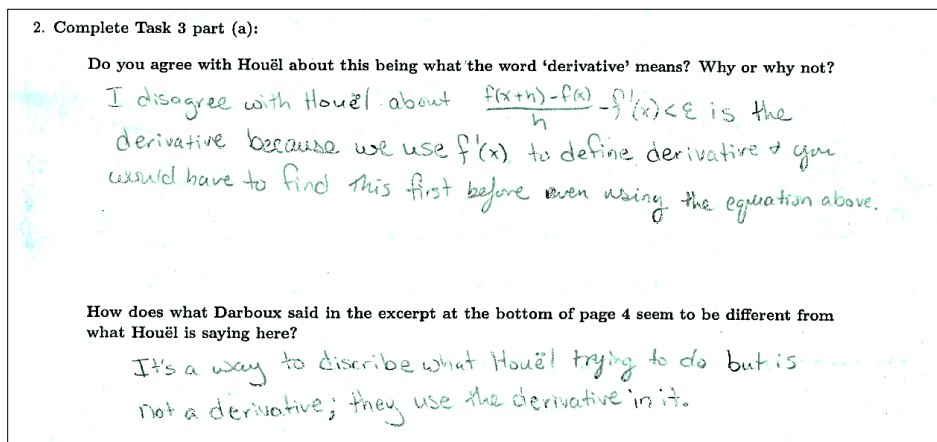 2. Complete Task 3 part (a):
Do you agree with Houël about this being what the word ‘derivative’ means? Why or why not?
I disagree with Houël about f(x+h)-f(x)/h - f'(x)<ε is the
derivative because we use f'(x) to define derivative & you
would have to find this first before even using the equation above.
How does what Darboux said in the excerpt at the bottom of page 4 seem to be different from
what Houël is saying here?
It's a way to discribe what Houël trying to do but is
not a derivative; they use the derivative in it.